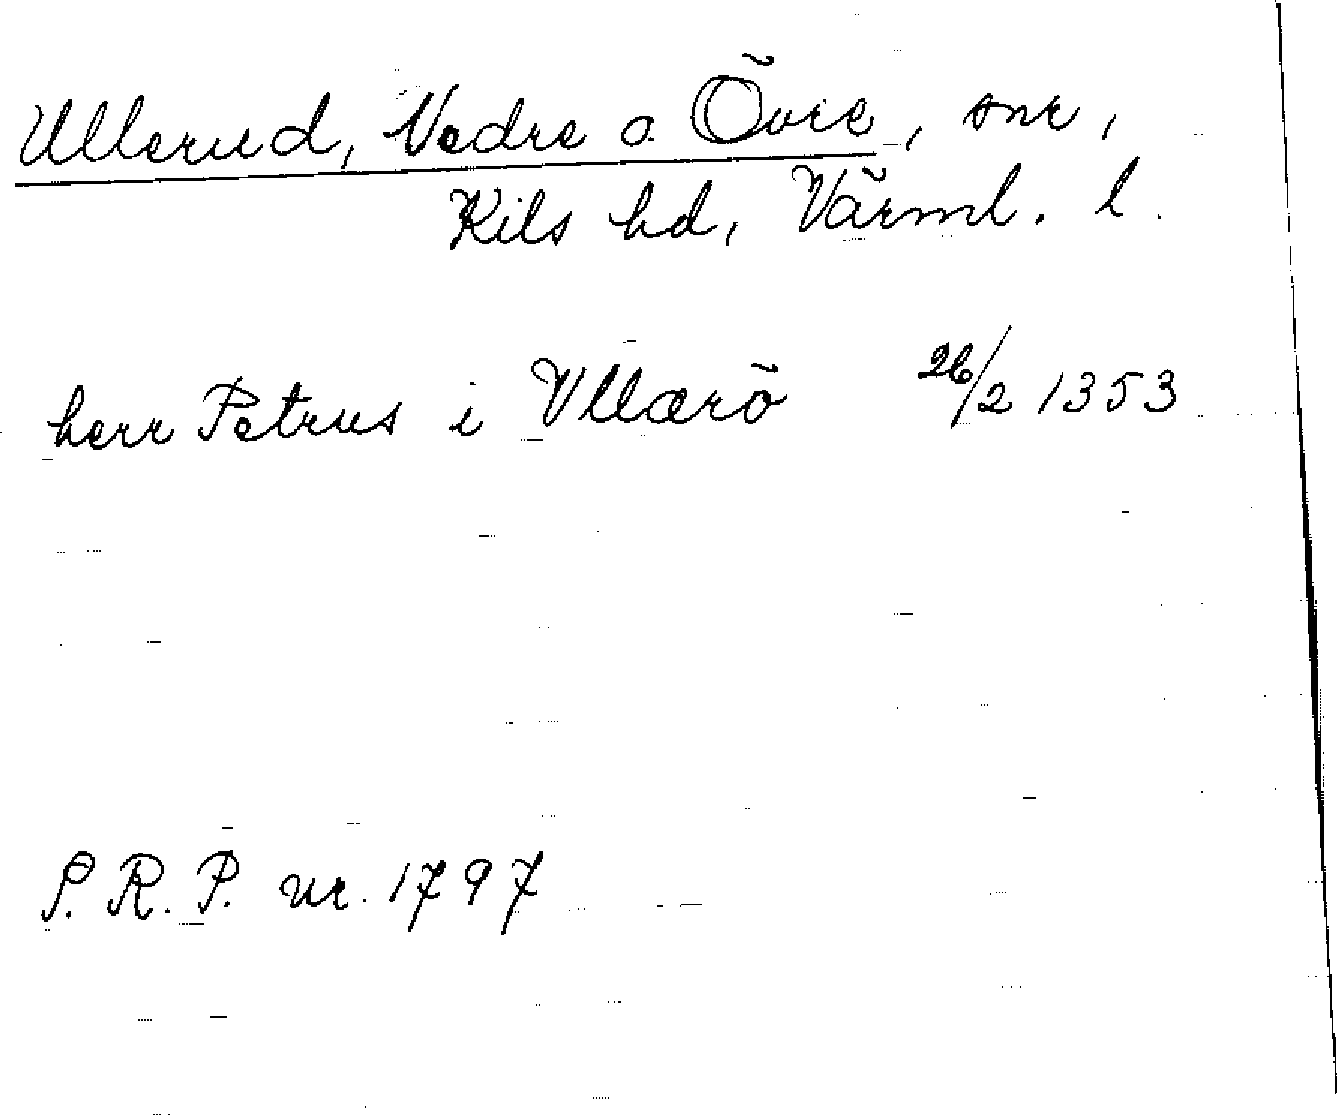 Ullerud, Nedre o. Övre, snr,
Kils hd, Värml. l.
herr Petrus i Vllærö 26/2 1353
S.R.P. nr. 1797